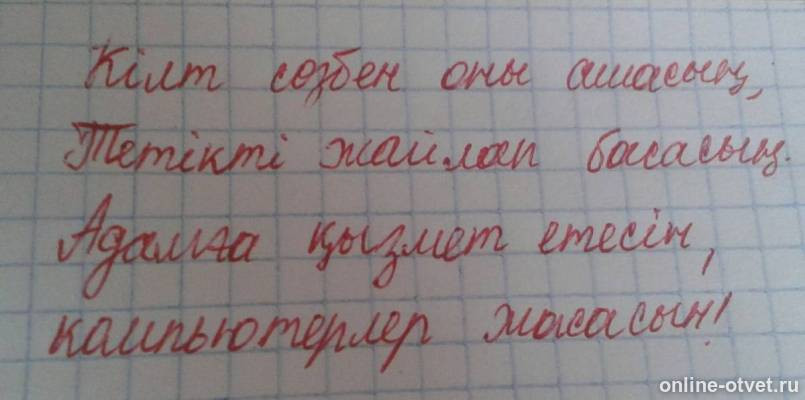 Кілт сөзбен оны ашасың,
Тетікті жайлап басасың.
Адамға қызмет етесін,
компьютерлер жасасын!
online-otvet.ru